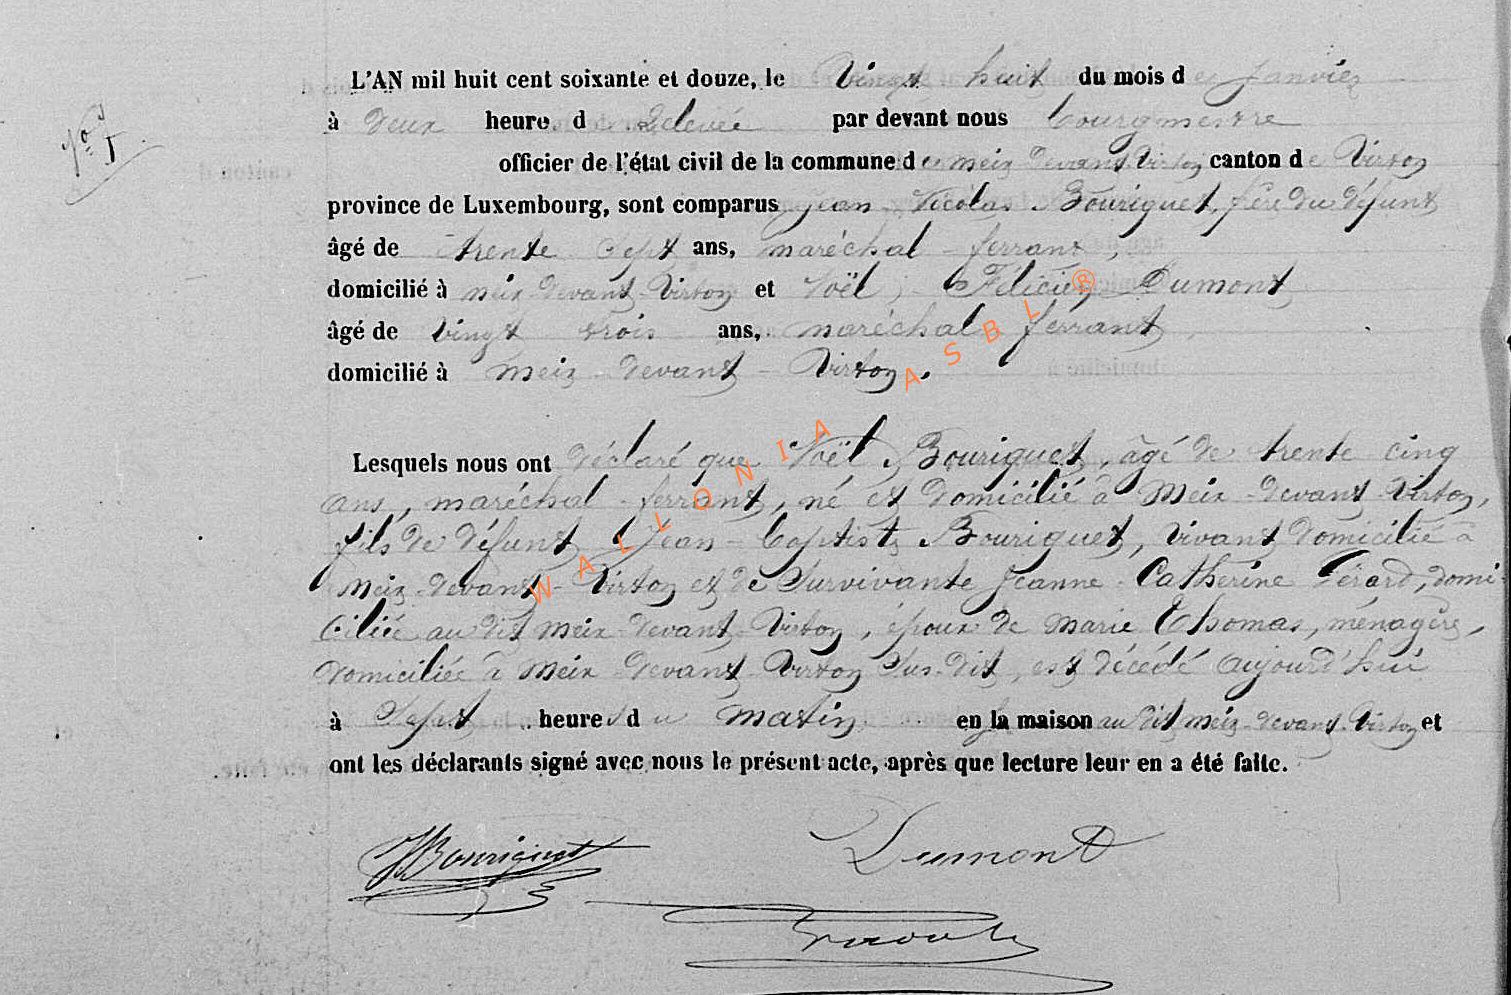 L'AN mil huit cent soixante et douze, le Vingt huit du mois de Janvier
N° 1
à Deux heure. d relevée par devant nous bourgmestre
officier de l'état civil de la commune de meix devant Virton canton de Virton
province de Luxembourg, sont comparus Jean Nicolas Bouriguet, frère du défunt
âgé de trente sept ans, maréchal - ferrant,
domicilié à meix-devant-Virton et Noël, Félicien Dumont
âgé de vingt trois ans, maréchal ferrant,
domicilié à meix-devant-Virton.
WALLONIA ASBL ®
Lesquels nous ont déclaré que Noël Bouriguet, âgé de trente cinq
ans, maréchal-ferrant, né et domicilié à Meix-devant-Virton,
fils de défunt Jean-baptiste Bouriguet, vivant domicilié à
Meix-devant-Virton et de survivante Jeanne-Catherine Gérard, domi
ciliée au dit meix-devant-Virton, époux de Marie Thomas, ménagère,
domiciliée à Meix-devant-Virton sus-dit, est décédé aujourd'hui
à sept heures du matin en la maison au dit meix-devant-Virton et
ont les déclarants signé avec nous le présent acte, après que lecture leur en a été faite.
JBouriguet Dumont